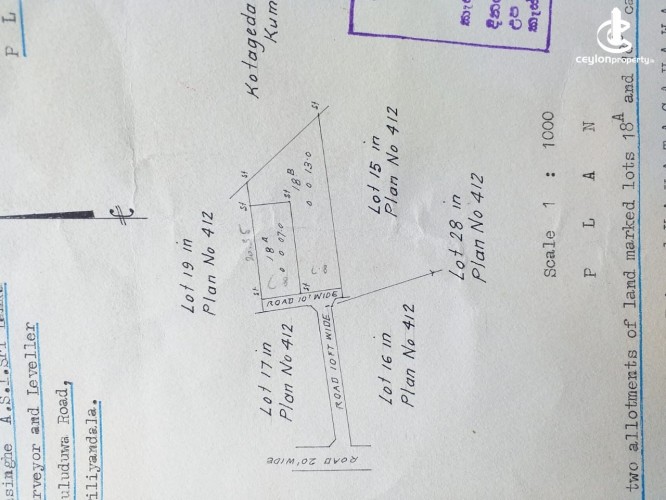 ceylonproperty.lk
P L
Kotageda
Kum
Lot 19 in
Plan No 412
18 A
0 0 07.0
18 B
0 0 13.0
Lot 15 in
Plan No 412
ROAD 10' WIDE
Lot 17 in
Plan No 412
ROAD 10 FT WIDE
Lot 16 in
Plan No 412
Lot 28 in
Plan No 412
ROAD 20' WIDE
Scale 1 : 1000
P L A N
two allotments of land marked lots 18A and
asinghe A.S.
rveyor and Leveller
uluduwa Road,
iliyandala.